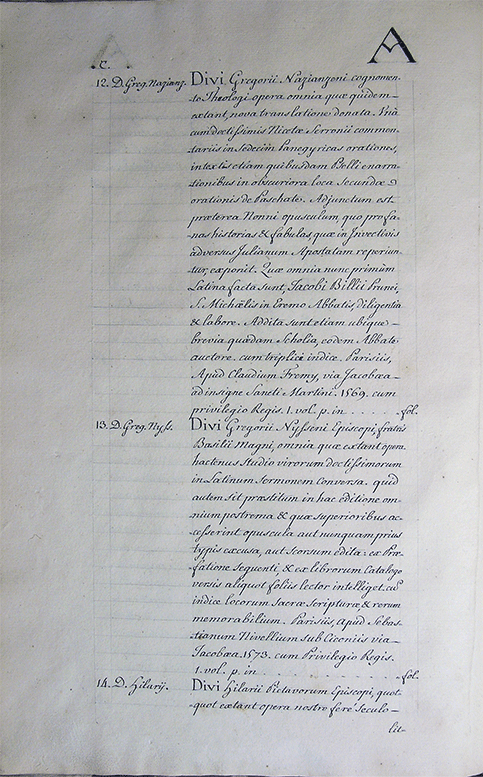 A
C.
12. D. Greg. Nazianz. Divi Gregorii Nazianzeni cognomen-
to Theologi opera omnia quæ quidem
extant, nova translatione donata. Unà
cum doctissimis Nicetæ Serronii commen-
tariis in sedecim Panegyricas orationes,
intextis etiam quibusdam Pselli enarra-
tionibus in obscuriora loca secundæ
orationis de Paschate. Adjunctum est
præterea Nonni opusculum, quo profa-
nas historias & fabulas, quæ in Invectivis
adversus Julianum Apostatam reperiun-
tur, exponit. Quæ omnia nunc primùm
Latina facta sunt, Jacobi Billii Prunei,
S. Michaëlis in Eremo Abbatis, diligentia
& labore. Addita sunt etiam ubique
brevia quædam Scholia, eodem Abbate
auctore. cum triplici indice. Parisiis,
Apud Claudium Fremy, via Jacobæa
ad insigne Sancti Martini. 1569. cum
privilegio Regis. 1. vol. p. in . . . . . fol.
13. D. Greg. Nyss. Divi Gregorii Nysseni Episcopi, fratris
Basilii Magni, omnia quæ extant opera
hactenus Studio virorum doctissimorum
in Latinum Sermonem conversa. quid
autem sit præstitum in hac editione om-
nium postrema & quæ superioribus ac-
cesserint opuscula aut nunquam prius
typis excusa, aut seorsum edita: ex Præ-
fatione sequenti, & ex librorum Catalogo
versis aliquot foliis lector intelliget. cū
indice locorum Sacræ Scripturæ, & rerum
memorabilium. Parisiis, Apud Sebas-
tianum Nivellium sub Ciconiis via
Jacobæa. 1573. cum Privilegio Regis.
1. vol. p. in . . . . . fol.
14. D. Hilarij. Divi Hilarii Pictavorum Episcopi, quot-
quot extant opera nostro ferè seculo
lit-